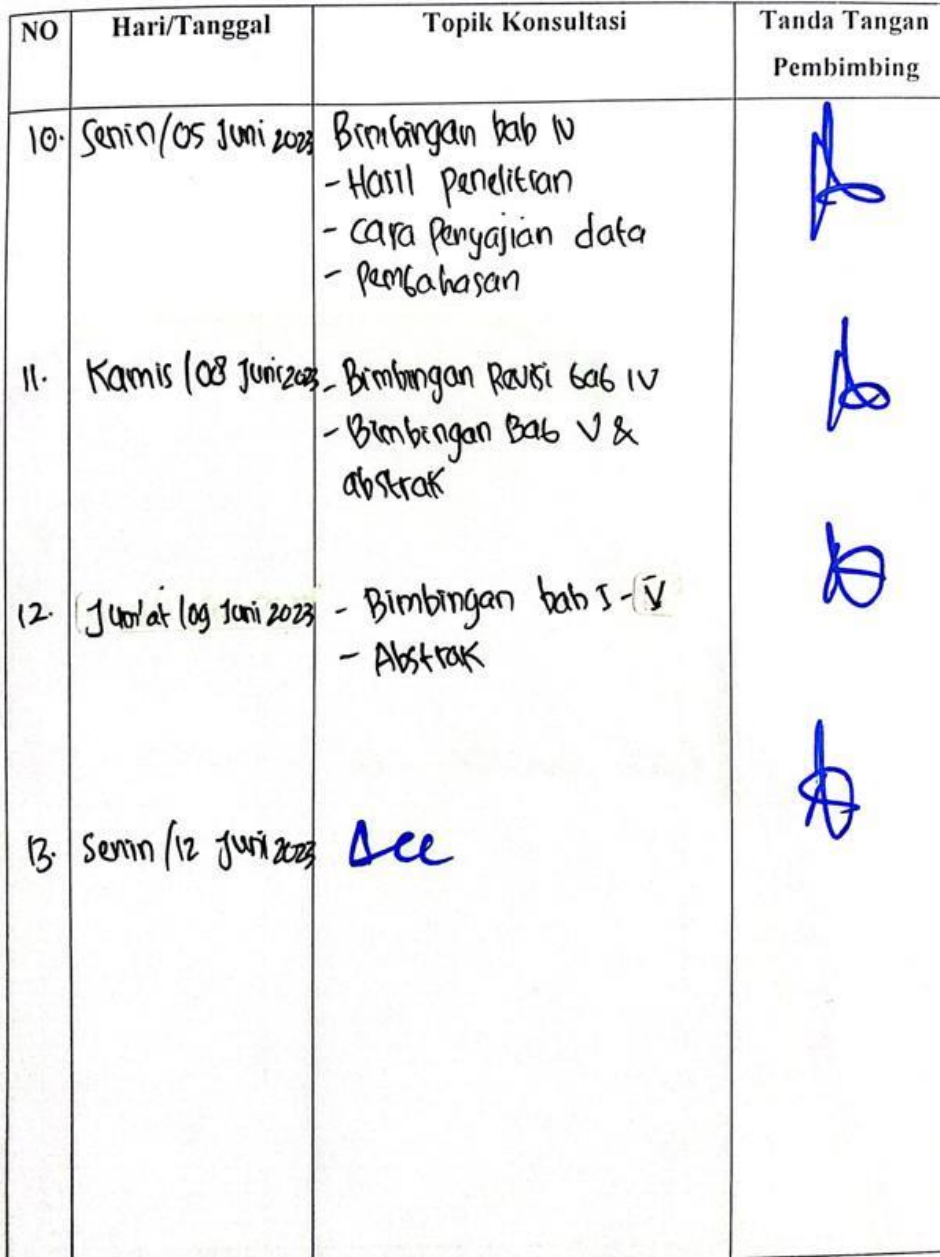 NO Hari/Tanggal Topik Konsultasi Tanda Tangan
Pembimbing
10. Senin/05 Juni 2023 Bimbingan bab IV
- Hasil penelitian
- cara Penyajian data
- Pembahasan
11. Kamis/08 Juni 2023 - Bimbingan Revisi bab IV
- Bimbingan Bab V &
abstrak
12. Jum'at/09 Juni 2023 - Bimbingan bab I-V
- Abstrak
13. Senin/12 Juni 2023 Acc